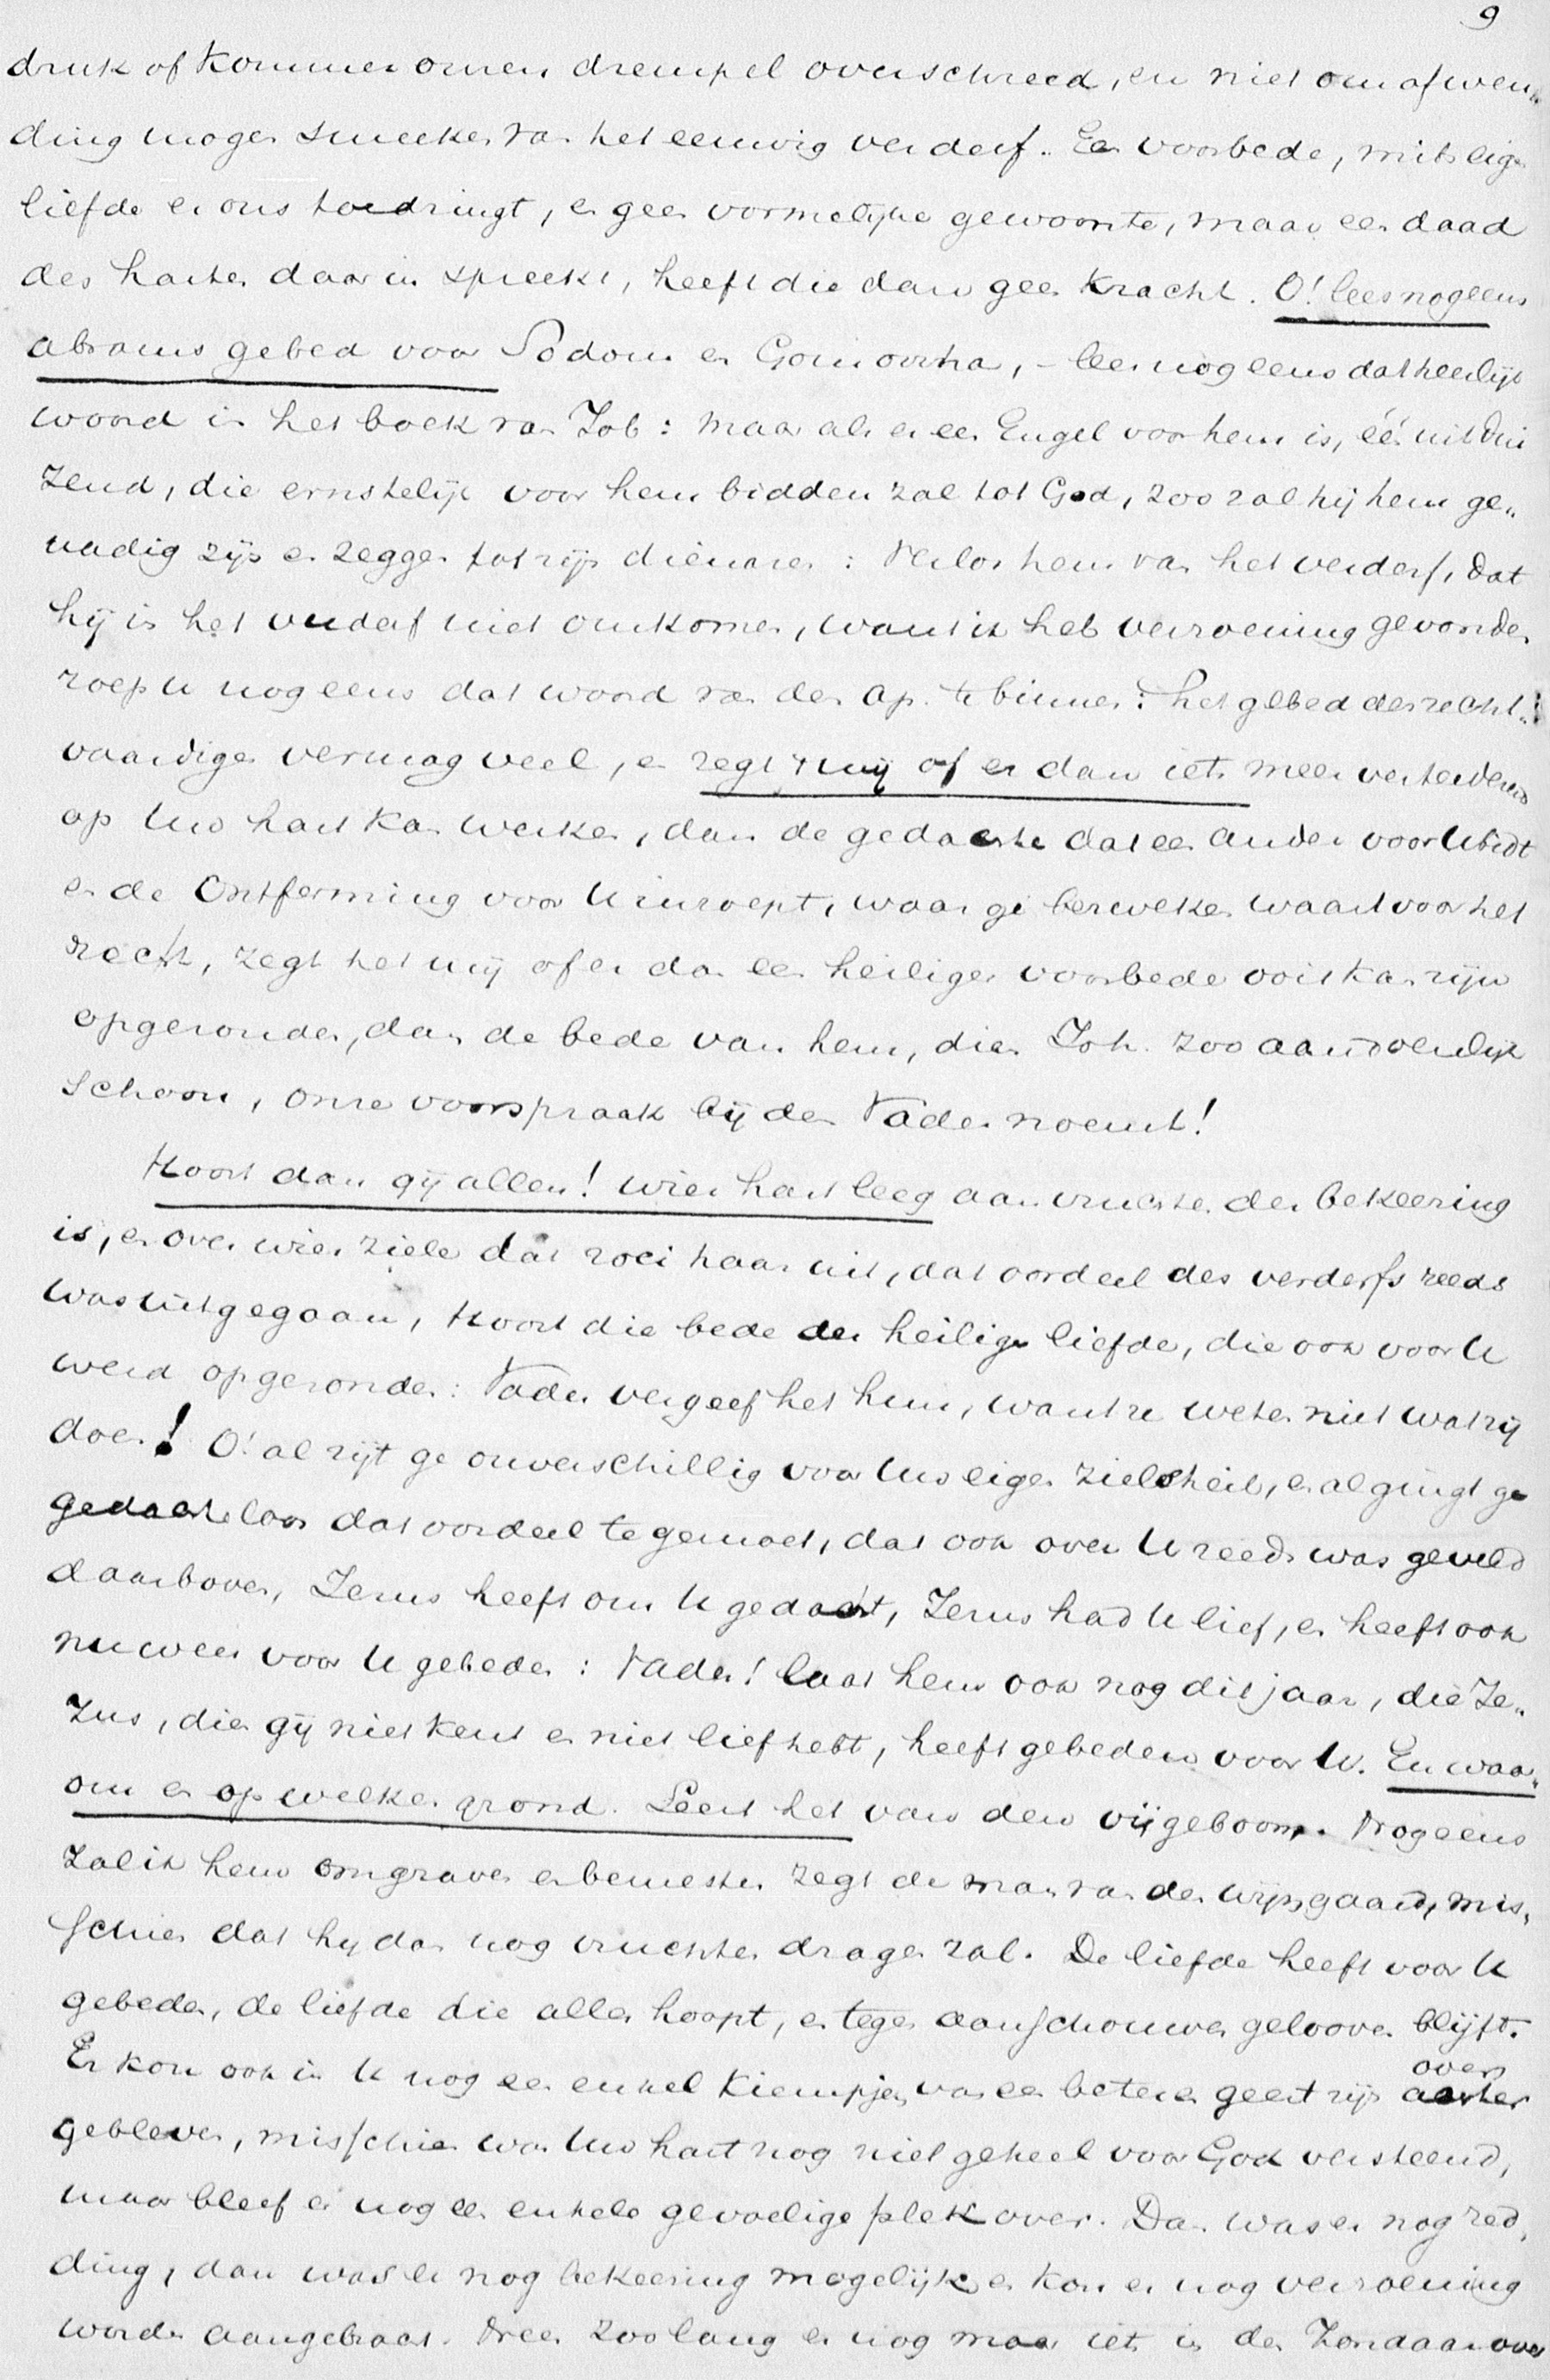 9
druk of kommer onzen drempel overschreed, en niet om afwen„
ding mogen smeeken van het eeuwig verderf. Een voorbede, mits eigen
liefde er ons toe dringt, en geen vormelijke gewoonte, maar een daad
des harten daar in spreekt, heeft die dan geen kracht. O! lees nog eens
abrams gebed voor Sodom en Gomorrha, – lees nog eens dat heerlijk
woord in het boek van Job: maar als er een Engel voor hem is, één uit dui
zend, die ernstelijk voor hem bidden zal tot God, zoo zal hij hem ge„
nadig zijn en zeggen tot zijn dienaren: Verlos hem van het verderf, dat
hij in het verderf niet omkomen, want ik heb verzoening gevonden
roep u nog eens dat woord van den Ap. te binnen: het gebed des recht„
vaardigen vermag veel, en zegt mij of er dan iets meer verteederend
op Uw hart kan werken, dan de gedachte dat een ander voor U bidt
en de Ontferming voor U inroept, waar ge bezweken waart voor het
recht, zegt het mij of er dan een heiliger voorbede ooit kan zijn
opgezonden, dan de bede van hem, dien Joh. zoo aandoenlijk
schoon, onze voorspraak bij den Vader noemt!
Hoort dan gij allen! wier hart leeg aan vruchten der bekeering
is, en over wier ziele dat roei haar uit, dat oordeel des verderfs reeds
was uitgegaan, hoort die bede der heilige liefde, die ook voor U
werd opgezonden: Vader vergeef het hun, want ze weten niet wat zij
doen! O! al zijt ge onverschillig voor Uw eigen zielsheil, en al gingt ge
gedachteloos dat oordeel te gemoet, dat ook over U reeds was geveld
daarboven, Jezus heeft om U gedacht, Jezus had U lief, en heeft ook
nu weer voor U gebeden: Vader! laat hem ook nog dit jaar, die Je„
zus, dien gij niet kent en niet liefhebt, heeft gebeden voor U. En waar„
om en op welken grond. Leert het van den vijgeboom. Nog eens
zal ik hem omgraven en bemesten zegt de man van den wijngaard, mis„
schien dat hij dan nog vruchten dragen zal. De liefde heeft voor U
gebeden, de liefde die alles hoopt, en tegen aanschouwen gelooven blijft.
over
Er kon ook in U nog een enkel kiempje, van een beteren geest zijn achter
gebleven, misschien was Uw hart nog niet geheel voor God versteend,
maar bleef er nog een enkele gevoelige plek over. Dan was er nog red„
ding, dan was er nog bekeering mogelijk en kon er nog verzoening
worden aangebracht. Neen zoolang er nog maar iets in den Zondaar over